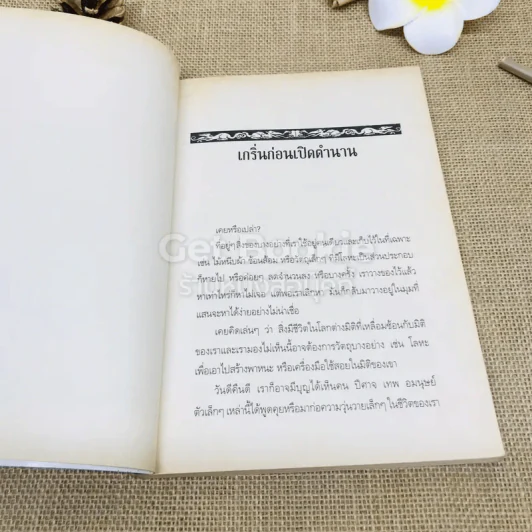 เกริ่นก่อนเปิดตำนาน
เคยหรือเปล่า?
ที่อยู่ๆ สิ่งของบางอย่างที่เราใช้อยู่คนเดียวและเก็บไว้ในที่เฉพาะ
เช่น ไม้หนีบผ้า ช้อนส้อม หรือวัตถุเล็กๆ ที่มีโลหะเป็นส่วนประกอบ
ก็หายไป หรือค่อยๆ ลดจำนวนลง หรือบางครั้ง เราวางของไว้แล้ว
หาเท่าไหร่ก็หาไม่เจอ แต่พอเราเลิกหา มันก็กลับมาวางอยู่ในมุมที่
แสนจะหาได้ง่ายอย่างไม่น่าเชื่อ
เคยคิดเล่นๆ ว่า สิ่งมีชีวิตในโลกต่างมิติที่เหลื่อมซ้อนกับมิติ
ของเราและเรามองไม่เห็นนี้อาจต้องการวัตถุบางอย่าง เช่น โลหะ
เพื่อเอาไปสร้างพาหนะ หรือเครื่องมือใช้สอยในมิติของเขา
วันดีคืนดี เราก็อาจมีบุญได้เห็นคน ปีศาจ เทพ อมนุษย์
ตัวเล็กๆ เหล่านี้ได้พูดคุยหรือมาก่อความวุ่นวายเล็กๆ ในชีวิตของเรา